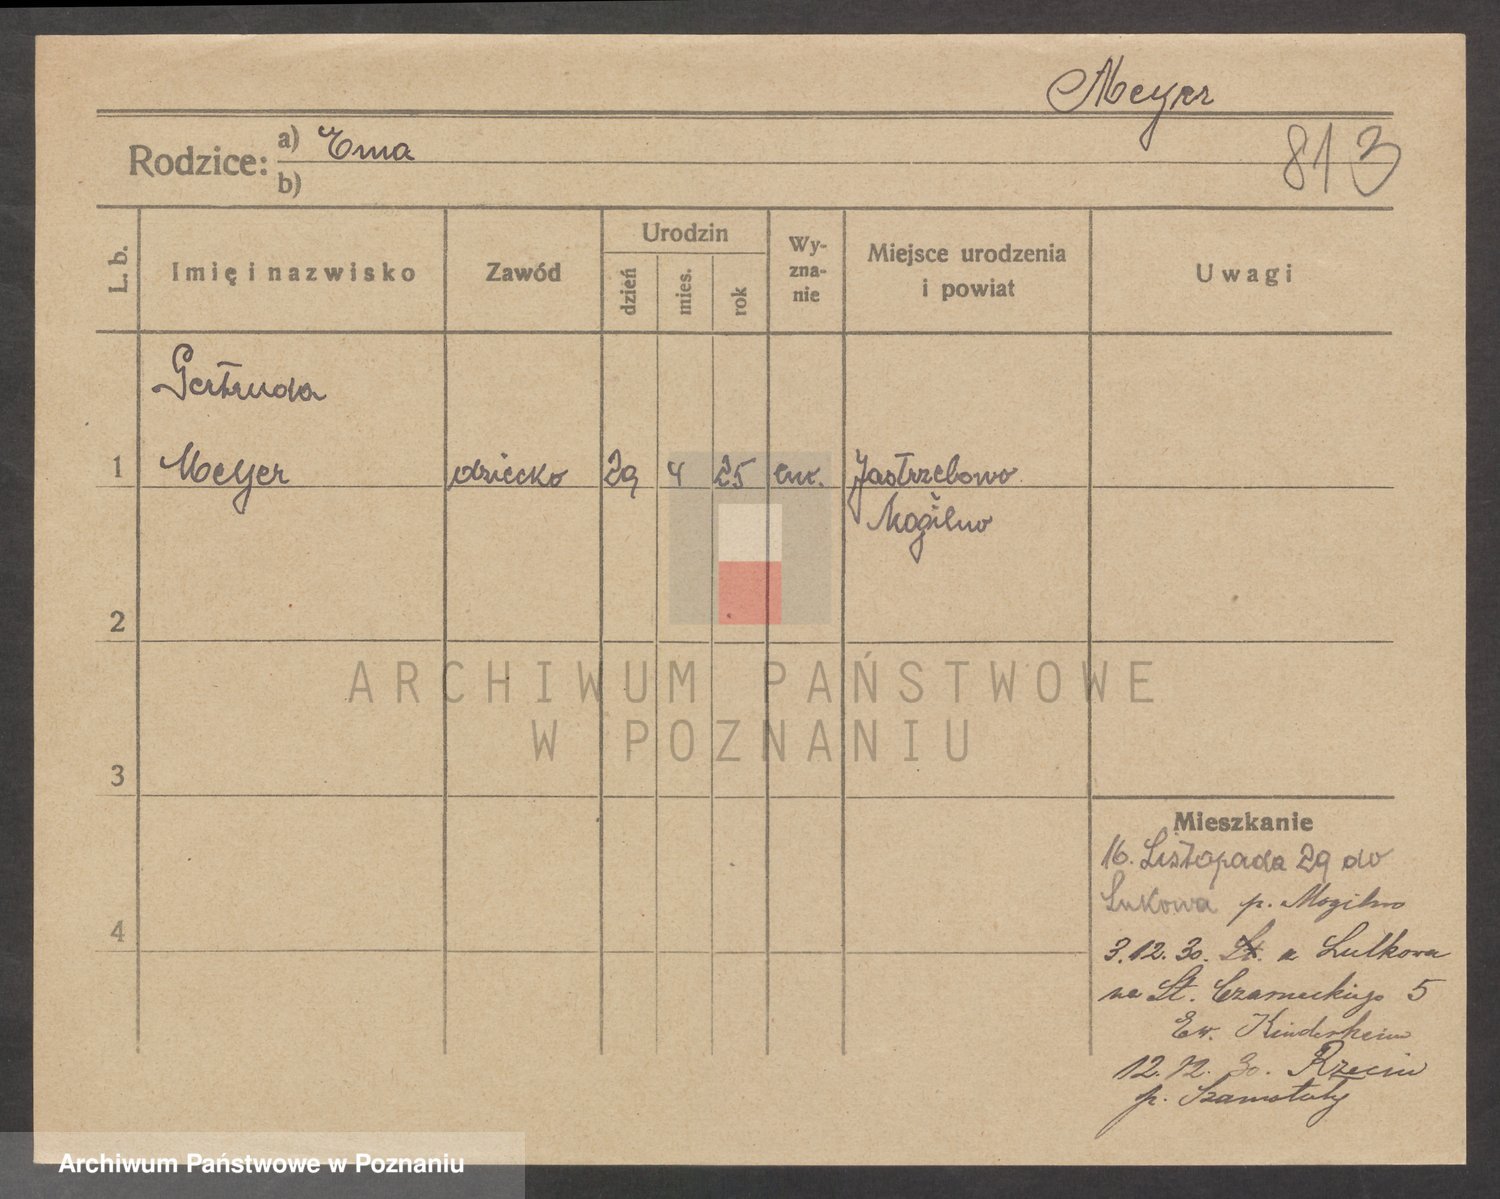 Meyer
813
Rodzice: a) Erna
b)
L. b. Imię i nazwisko Zawód Urodzin dzień mies. rok Wy-zna-nie Miejsce urodzenia i powiat Uwagi
Gertruda
1 Meyer dziecko 29 4 25 ew. Jastrzebowo
Mogilno
2
ARCHIWUM PAŃSTWOWE
W POZNANIU
3
Mieszkanie
16. Listopada 29 do
Lukowa p. Mogilno
4
3.12.30. z Lulkowa
na St. Czarneckiego 5
Ew. Kinderheim
12.12.30. Rzecin
p. Szamotuły
Archiwum Państwowe w Poznaniu